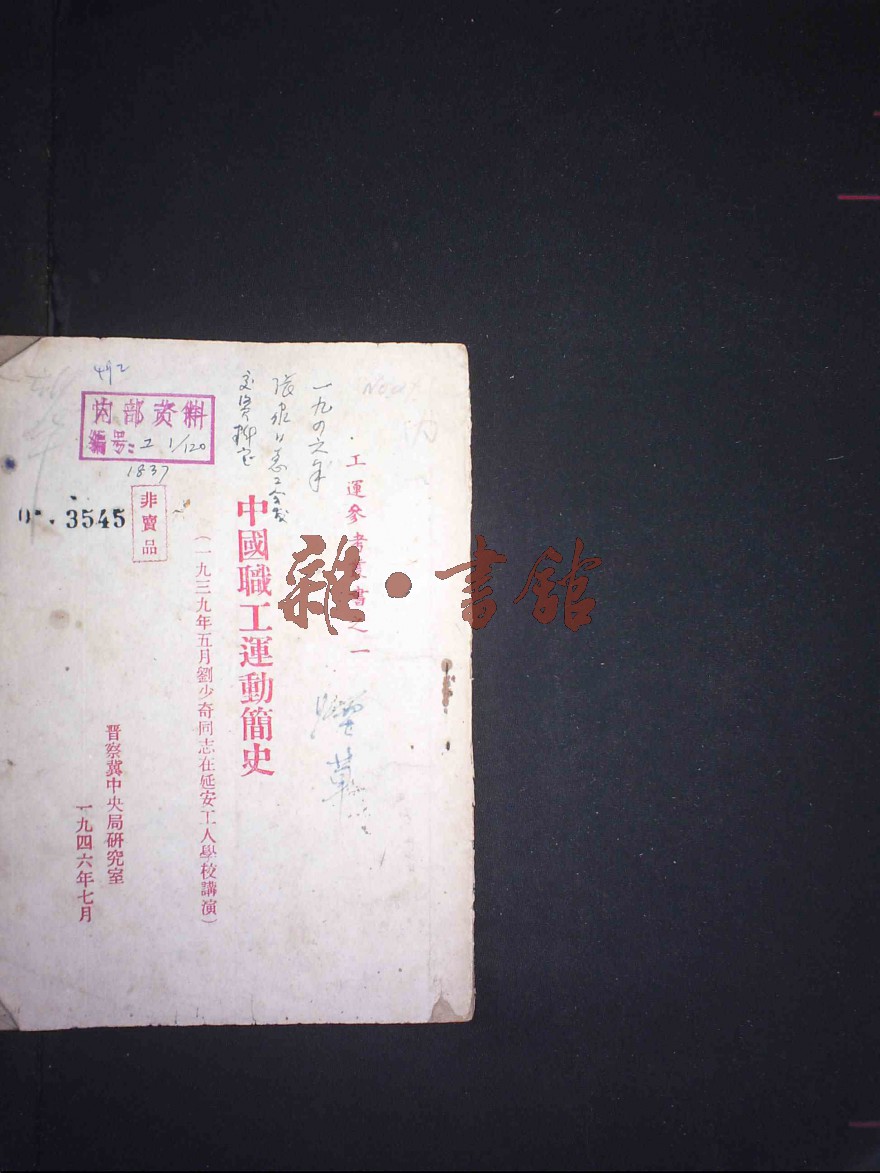 工運參考叢書之一
一九四六年
張家口總工会发
交資料室
中國職工運動簡史
(一九三九年五月劉少奇同志在延安工人學校講演)
晋察冀中央局研究室
一九四六年七月
非賣品
492
内部资料
编号: 工 1/120
1837
3545
雜·書館